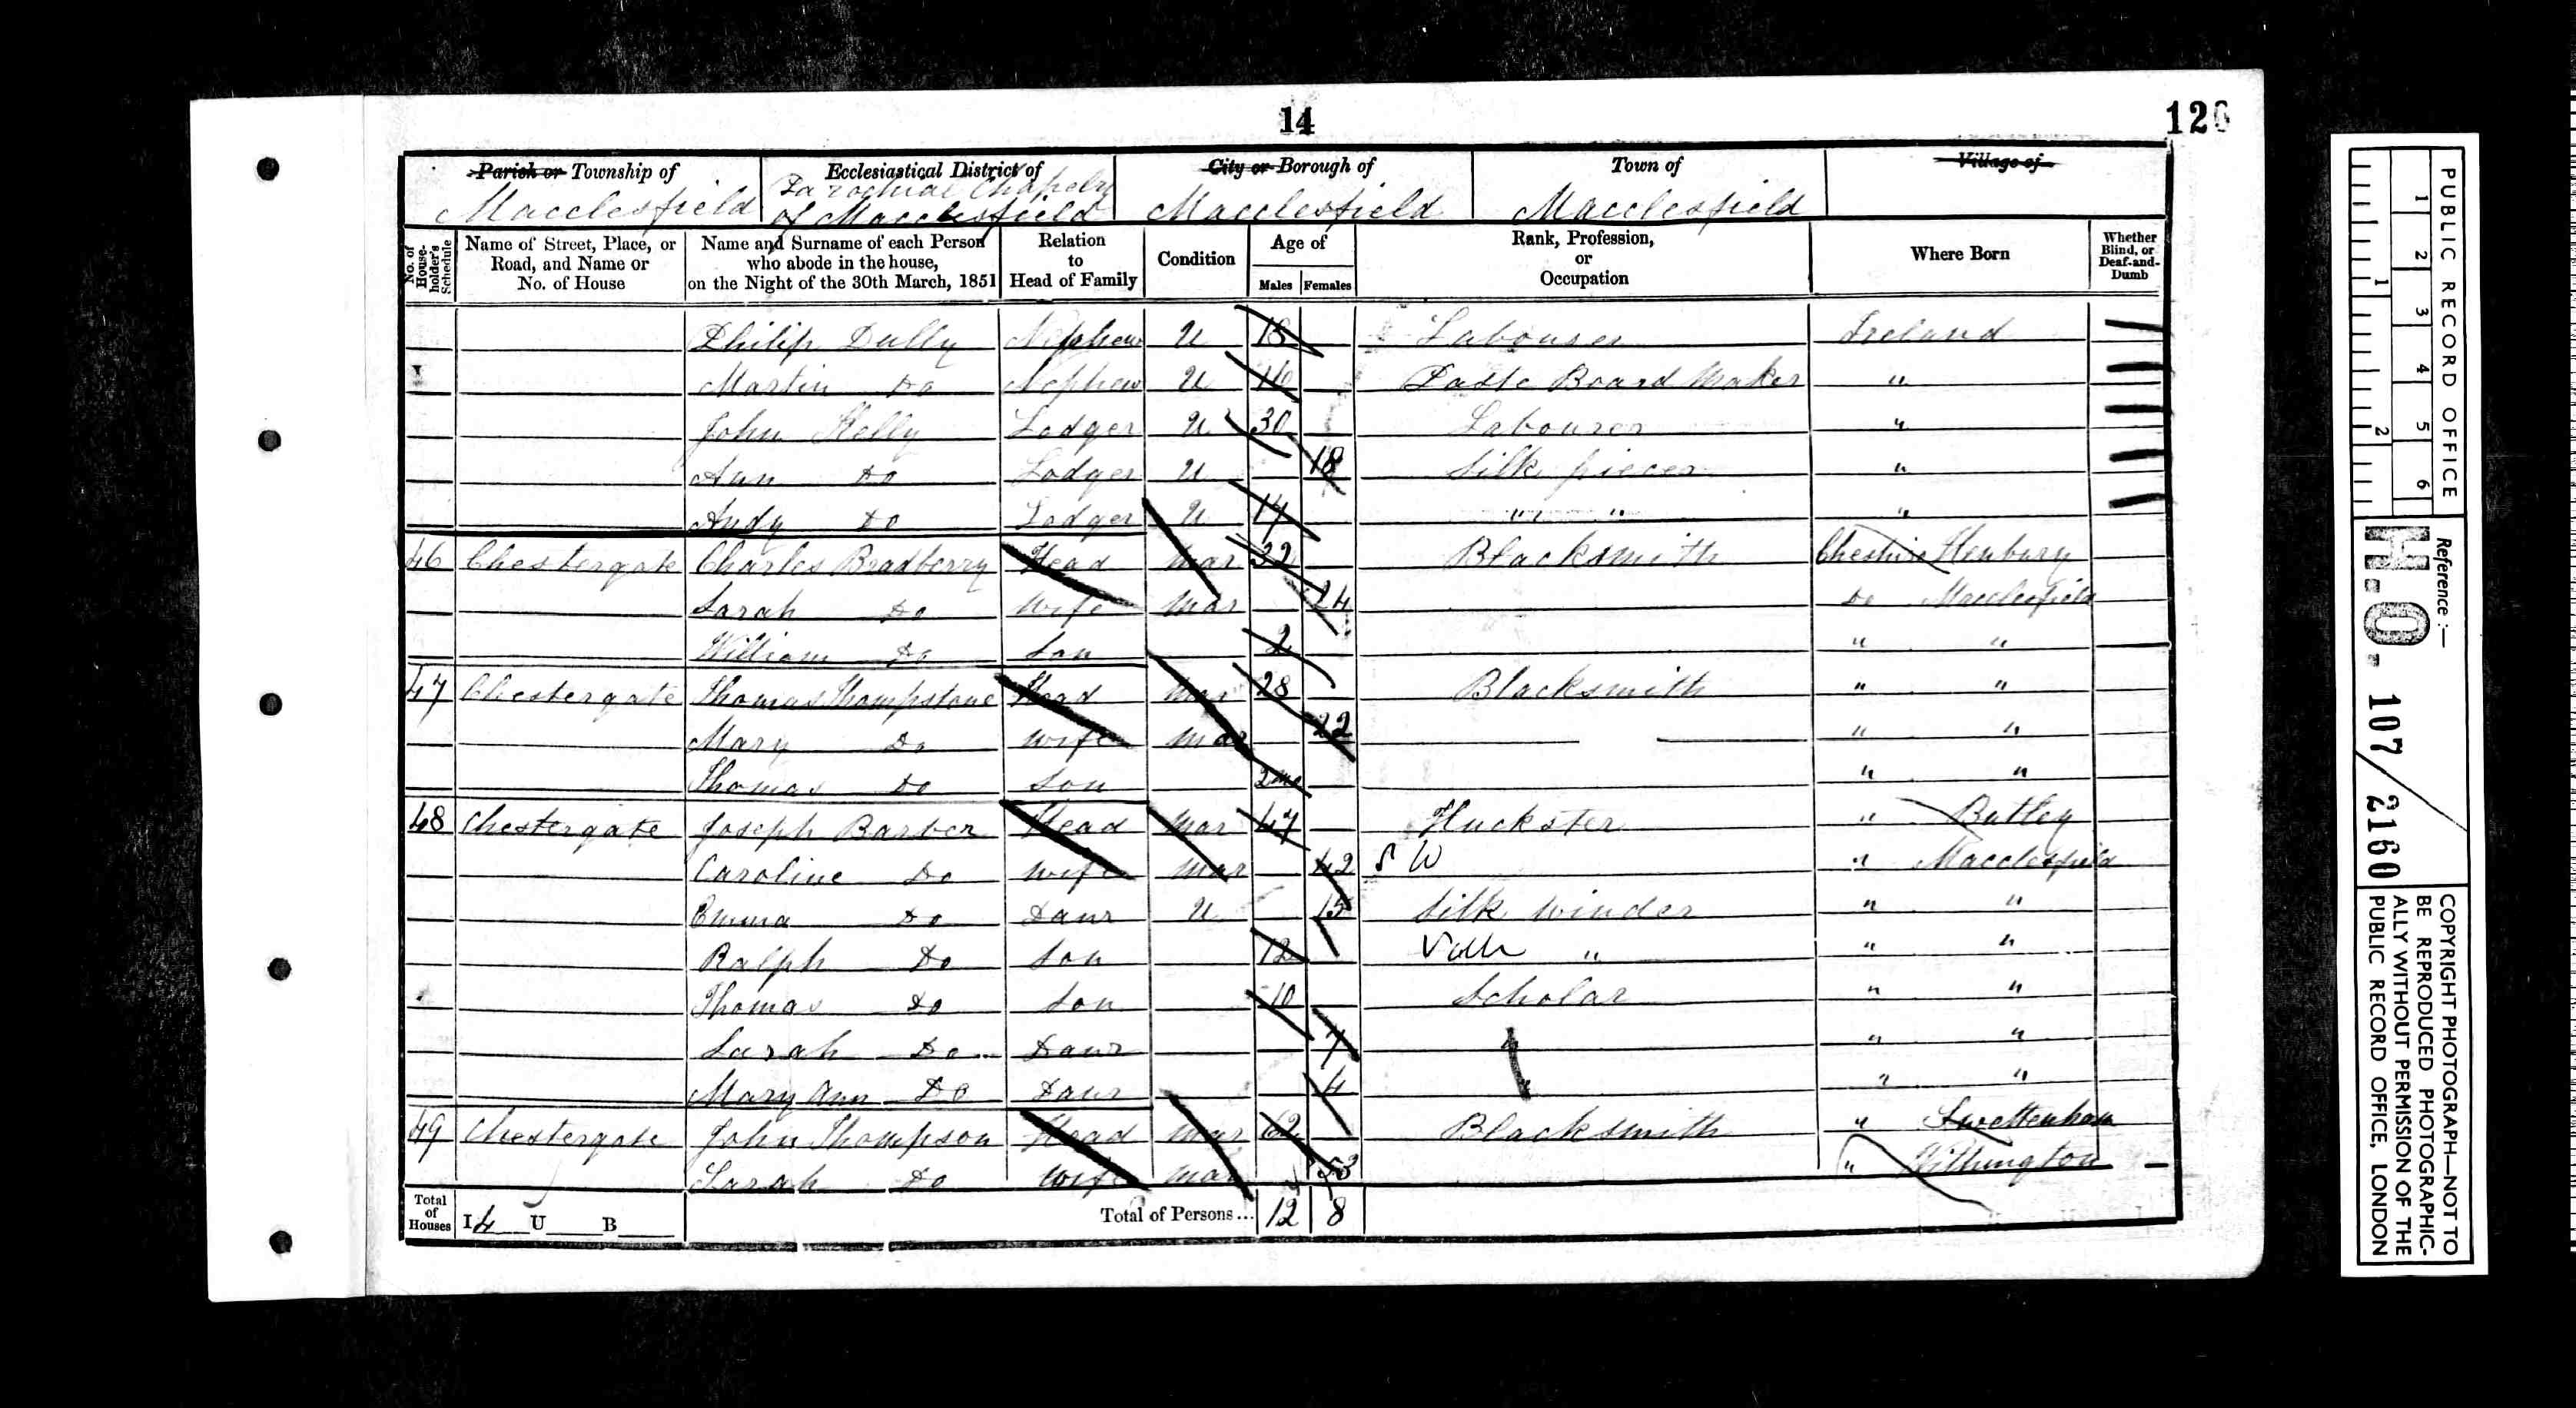 14
120
Parish or Township of
Macclesfield
Ecclesiastical District of
Parochial Chapelry
of Macclesfield
City or Borough of
Macclesfield
Town of
Macclesfield
Village of
No. of House-holder's Schedule
Name of Street, Place, or Road, and Name or No. of House
Name and Surname of each Person who abode in the house, on the Night of the 30th March, 1851
Relation to Head of Family
Condition
Age of
Males Females
Rank, Profession, or Occupation
Where Born
Whether Blind, or Deaf-and-Dumb
Philip Dully Nephew U 18 Labourer Ireland
Martin Do Nephew U 16 Paste Board Maker "
John Kelly Lodger U 30 Labourer "
Ann Do Lodger U 18 Silk piecer "
Andy Do Lodger U 14 " " "
46 Chestergate Charles Bradberry Head Mar 32 Blacksmith Cheshire Henbury
Sarah Do Wife Mar 24 Do Macclesfield
William Do Son 2 " "
47 Chestergate Thomas Thompstone Head Mar 28 Blacksmith " "
Mary Do Wife Mar 22 " "
Thomas Do Son " "
48 Chestergate Joseph Barber Head Mar 47 Huckster " Butley
Caroline Do Wife Mar 42 S W " Macclesfield
Emma Do Daur U 15 Silk Winder " "
Ralph Do Son 12 " " "
Thomas Do Son 10 Scholar " "
Sarah Do Daur 7 " "
Mary Ann Do Daur 4 " "
49 Chestergate John Thompson Head Mar 62 Blacksmith " Swettenham
Sarah Do Wife Mar 53 " Withington
Total of Houses I 4 U B Total of Persons... 12 8
PUBLIC RECORD OFFICE
1 2 3 4 5 6
1 2
Reference :-
H.O. 107/2160
COPYRIGHT PHOTOGRAPH—NOT TO
BE REPRODUCED PHOTOGRAPHIC-
ALLY WITHOUT PERMISSION OF THE
PUBLIC RECORD OFFICE, LONDON